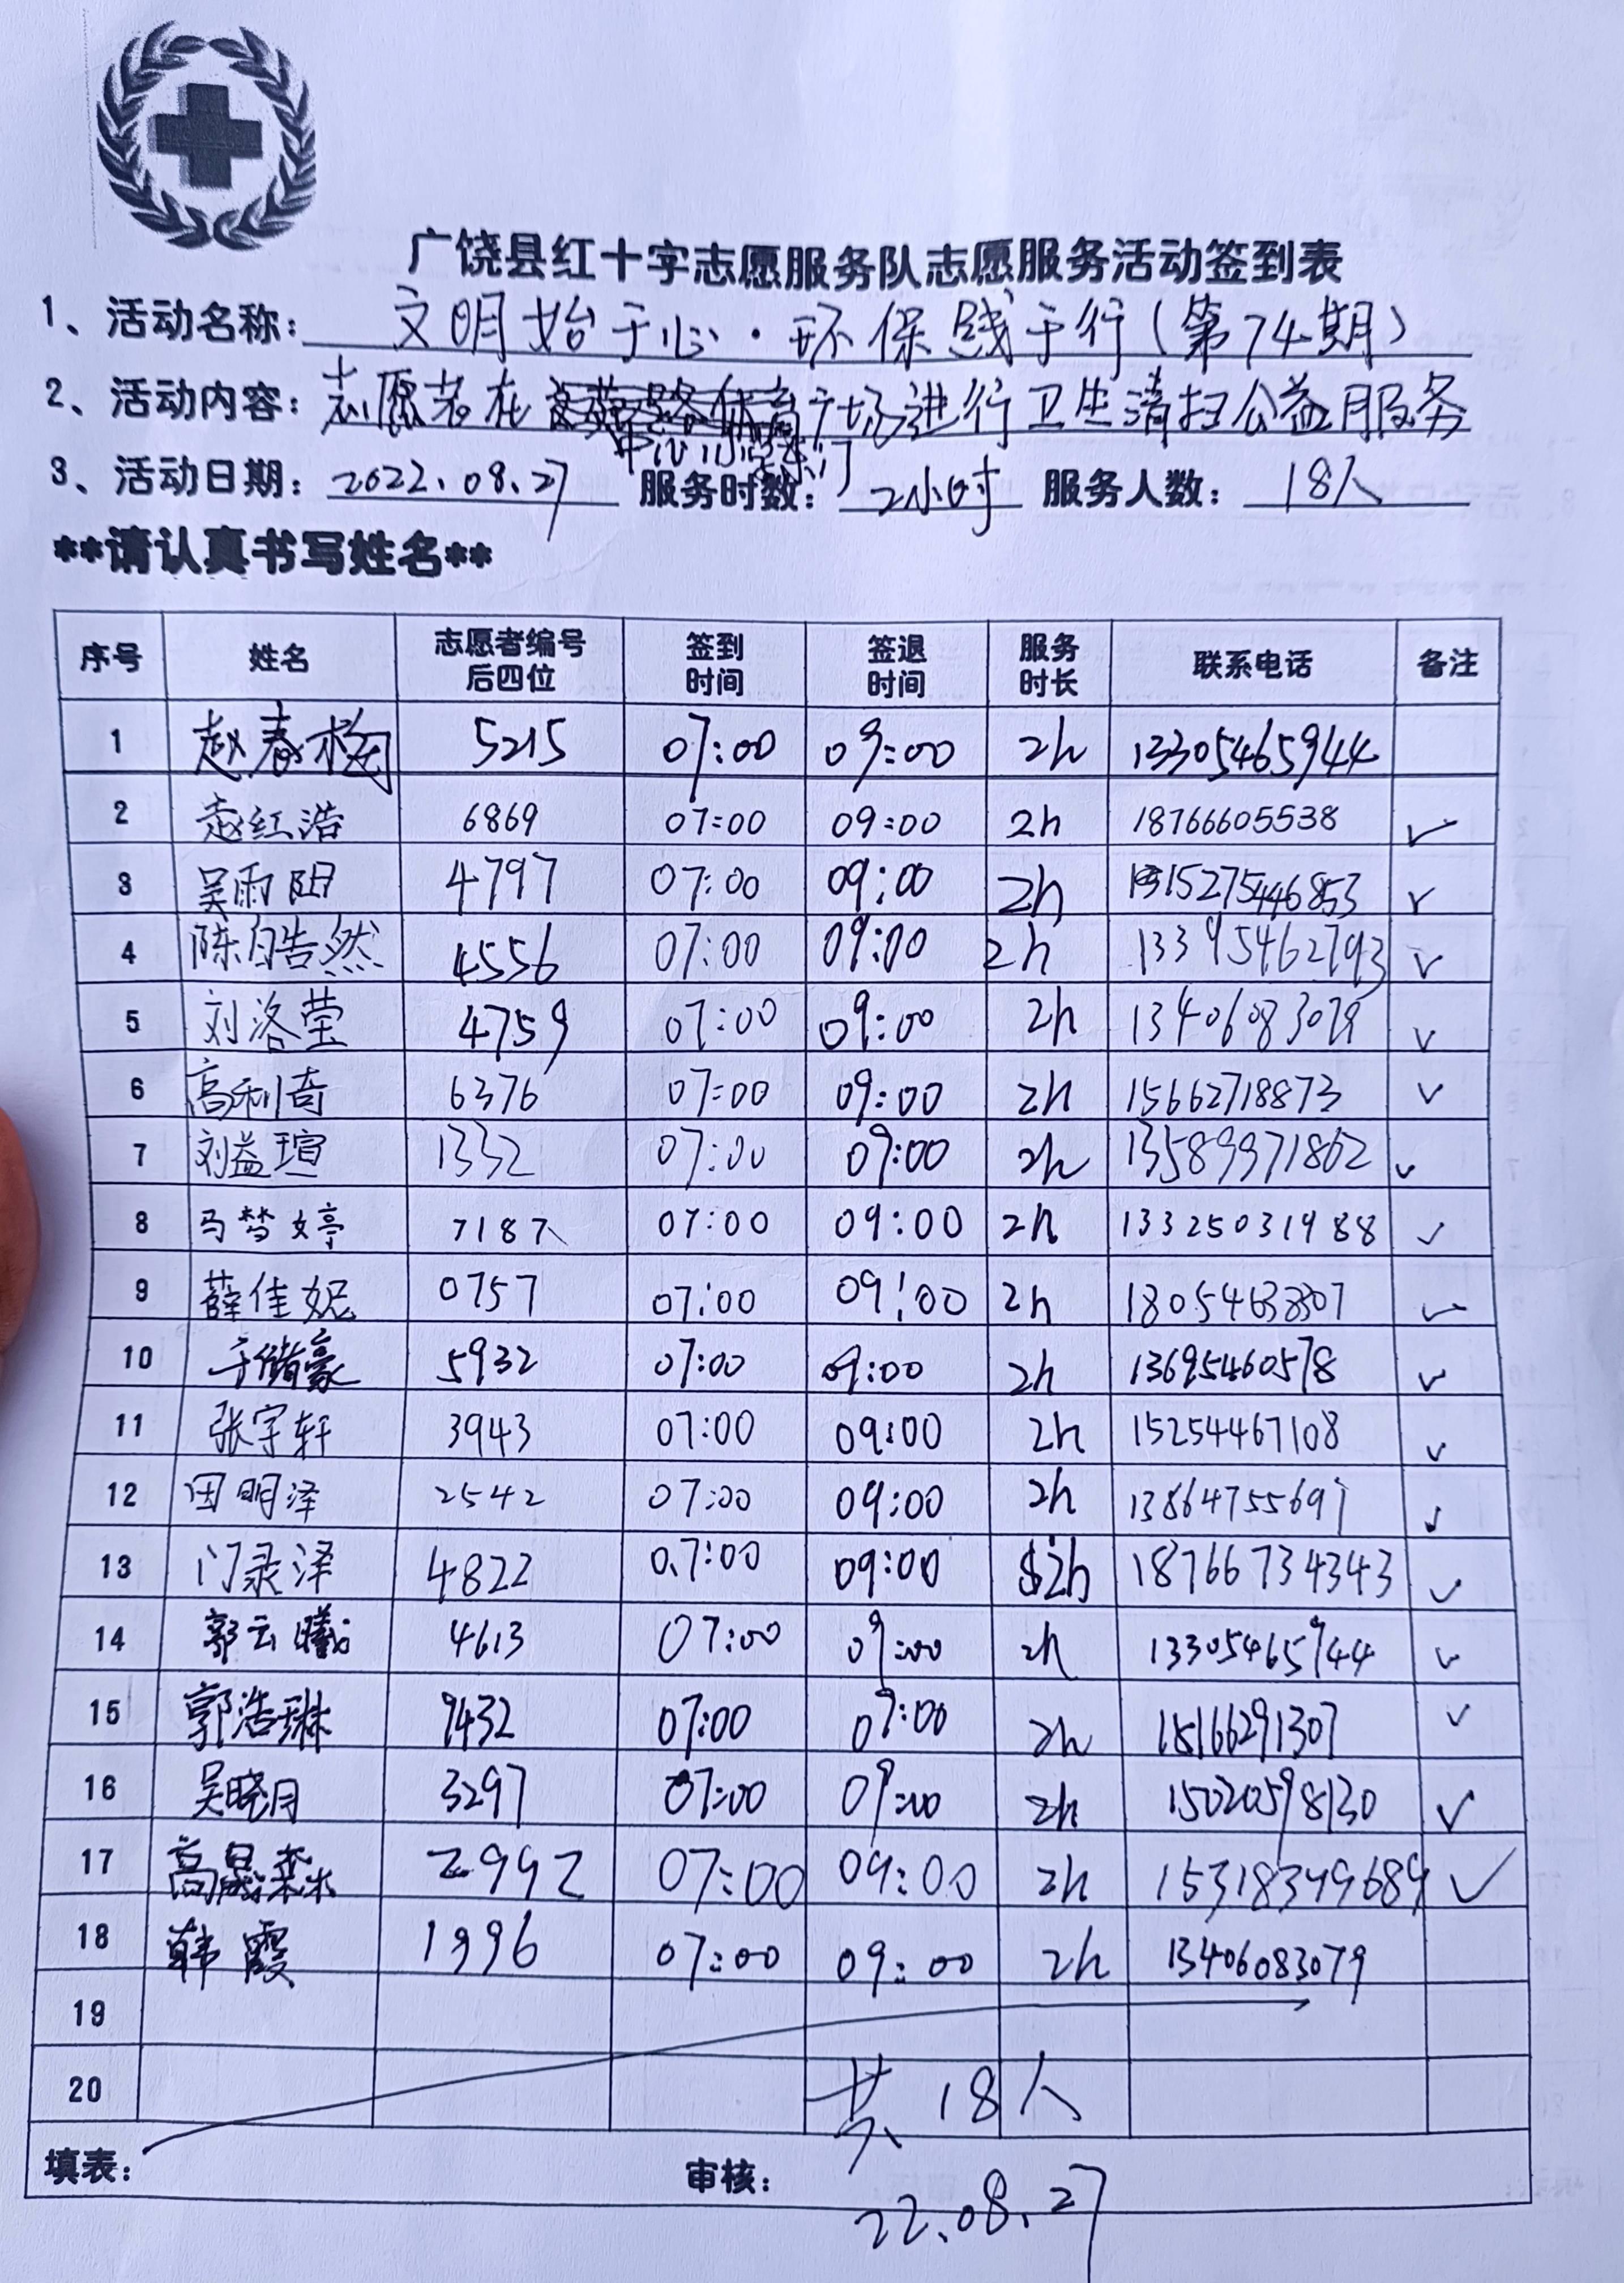 广饶县红十字志愿服务队志愿服务活动签到表
1、活动名称: 文明始于心·环保践于行(第74期)
2、活动内容: 志愿者在广场进行卫生清扫公益服务
3、活动日期: 2022.08.27 服务时数: 2小时 服务人数: 18人
**请认真书写姓名**
序号 姓名 志愿者编号后四位 签到时间 签退时间 服务时长 联系电话 备注
1 赵春梅 5215 07:00 09:00 2h 13305465944
2 赵红浩 6869 07:00 09:00 2h 18766605538 ✓
3 吴雨阳 4797 07:00 09:00 2h 15275446853 ✓
4 陈皓然 4556 07:00 09:00 2h 13395462793 ✓
5 刘洛莹 4759 07:00 09:00 2h 13406083079 ✓
6 高利奇 6376 07:00 09:00 2h 15662718873 ✓
7 刘益瑄 1332 07:00 09:00 2h 13589971862 ✓
8 马梦婷 7187 07:00 09:00 2h 13325031988 ✓
9 薛佳妮 0757 07:00 09:00 2h 18054638307 ✓
10 于储豪 5932 07:00 09:00 2h 13695460578 ✓
11 张宇轩 3943 07:00 09:00 2h 15254467108 ✓
12 田明泽 2542 07:00 09:00 2h 13864755691 ✓
13 门录泽 4822 07:00 09:00 2h 18766734343 ✓
14 郭云曦 4613 07:00 09:00 2h 13305465944 ✓
15 郭浩琳 9432 07:00 09:00 2h 15166291307 ✓
16 吴晓月 3297 07:00 09:00 2h 15020598130 ✓
17 高晟森 2992 07:00 09:00 2h 15318349689 ✓
18 韩霞 1996 07:00 09:00 2h 13406083079
19
20 共18人
填表: 审核:
22.08.27